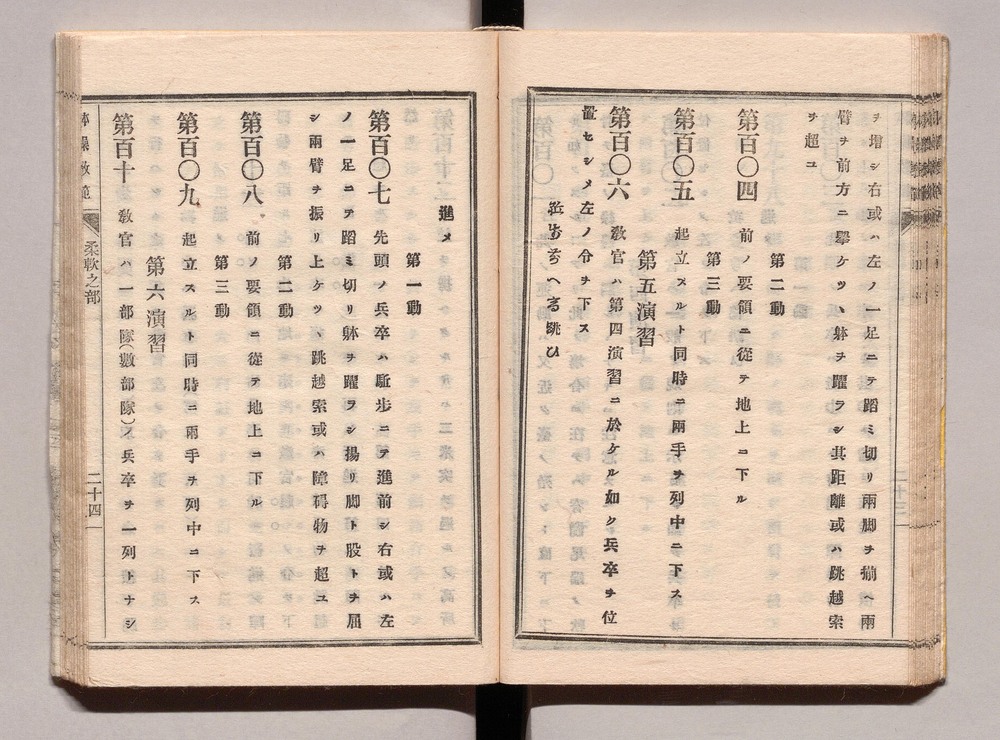 ヲ增シ右或ハ左ノ一足ニテ蹈ミ切リ兩脚ヲ揃ヘ兩
臂ヲ前方ニ擧ケツヽ躰ヲ躍ラシ其距離或ハ跳越索
ヲ超ユ
第二動
第百〇四 前ノ要領ニ從テ地上ニ下ル
第三動
第百〇五 起立スルト同時ニ兩手ヲ列中ニ下ス
第五演習
第百〇六 敎官ハ第四演習ニ於ケル如ク兵卒ヲ位
置セシメ左ノ令ヲ下ス
跳ひ
進メ
第一動
第百〇七 先頭ノ兵卒ハ駈歩ニテ進前シ右或ハ左
ノ一足ニテ蹈ミ切リ躰ヲ躍ラシ揚リ脚ト股トヲ屈
シ兩臂ヲ振リ上ケツヽ跳越索或ハ障碍物ヲ超ユ
第二動
第百〇八 前ノ要領ニ從テ地上ニ下ル
第三動
第百〇九 起立スルト同時ニ兩手ヲ列中ニ下ス
第六演習
第百十 敎官ハ一部隊(數部隊)ノ兵卒ヲ一列トナシ
操敎範
柔軟之部
二十四